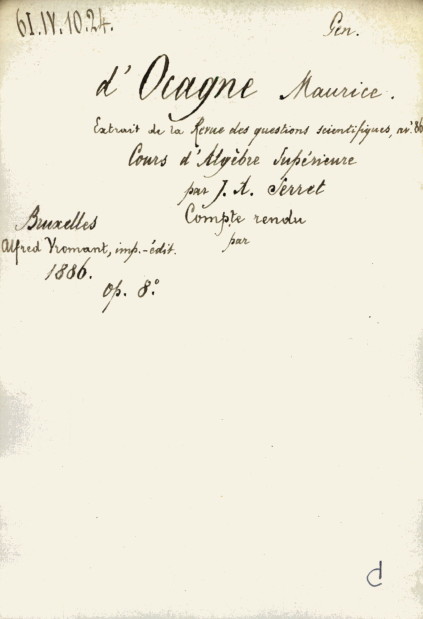 61.IV.10.24.
Gen.
d' Ocagne Maurice.
Extrait de la Revue des questions scientifiques, avr. 86
Cours d'Algèbre Supérieure
par J. A. Serret
Compte rendu
par
Bruxelles
Alfred Vromant, imp.-édit.
1886.
op. 8.°